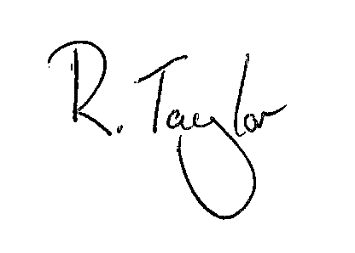 R. Taylor